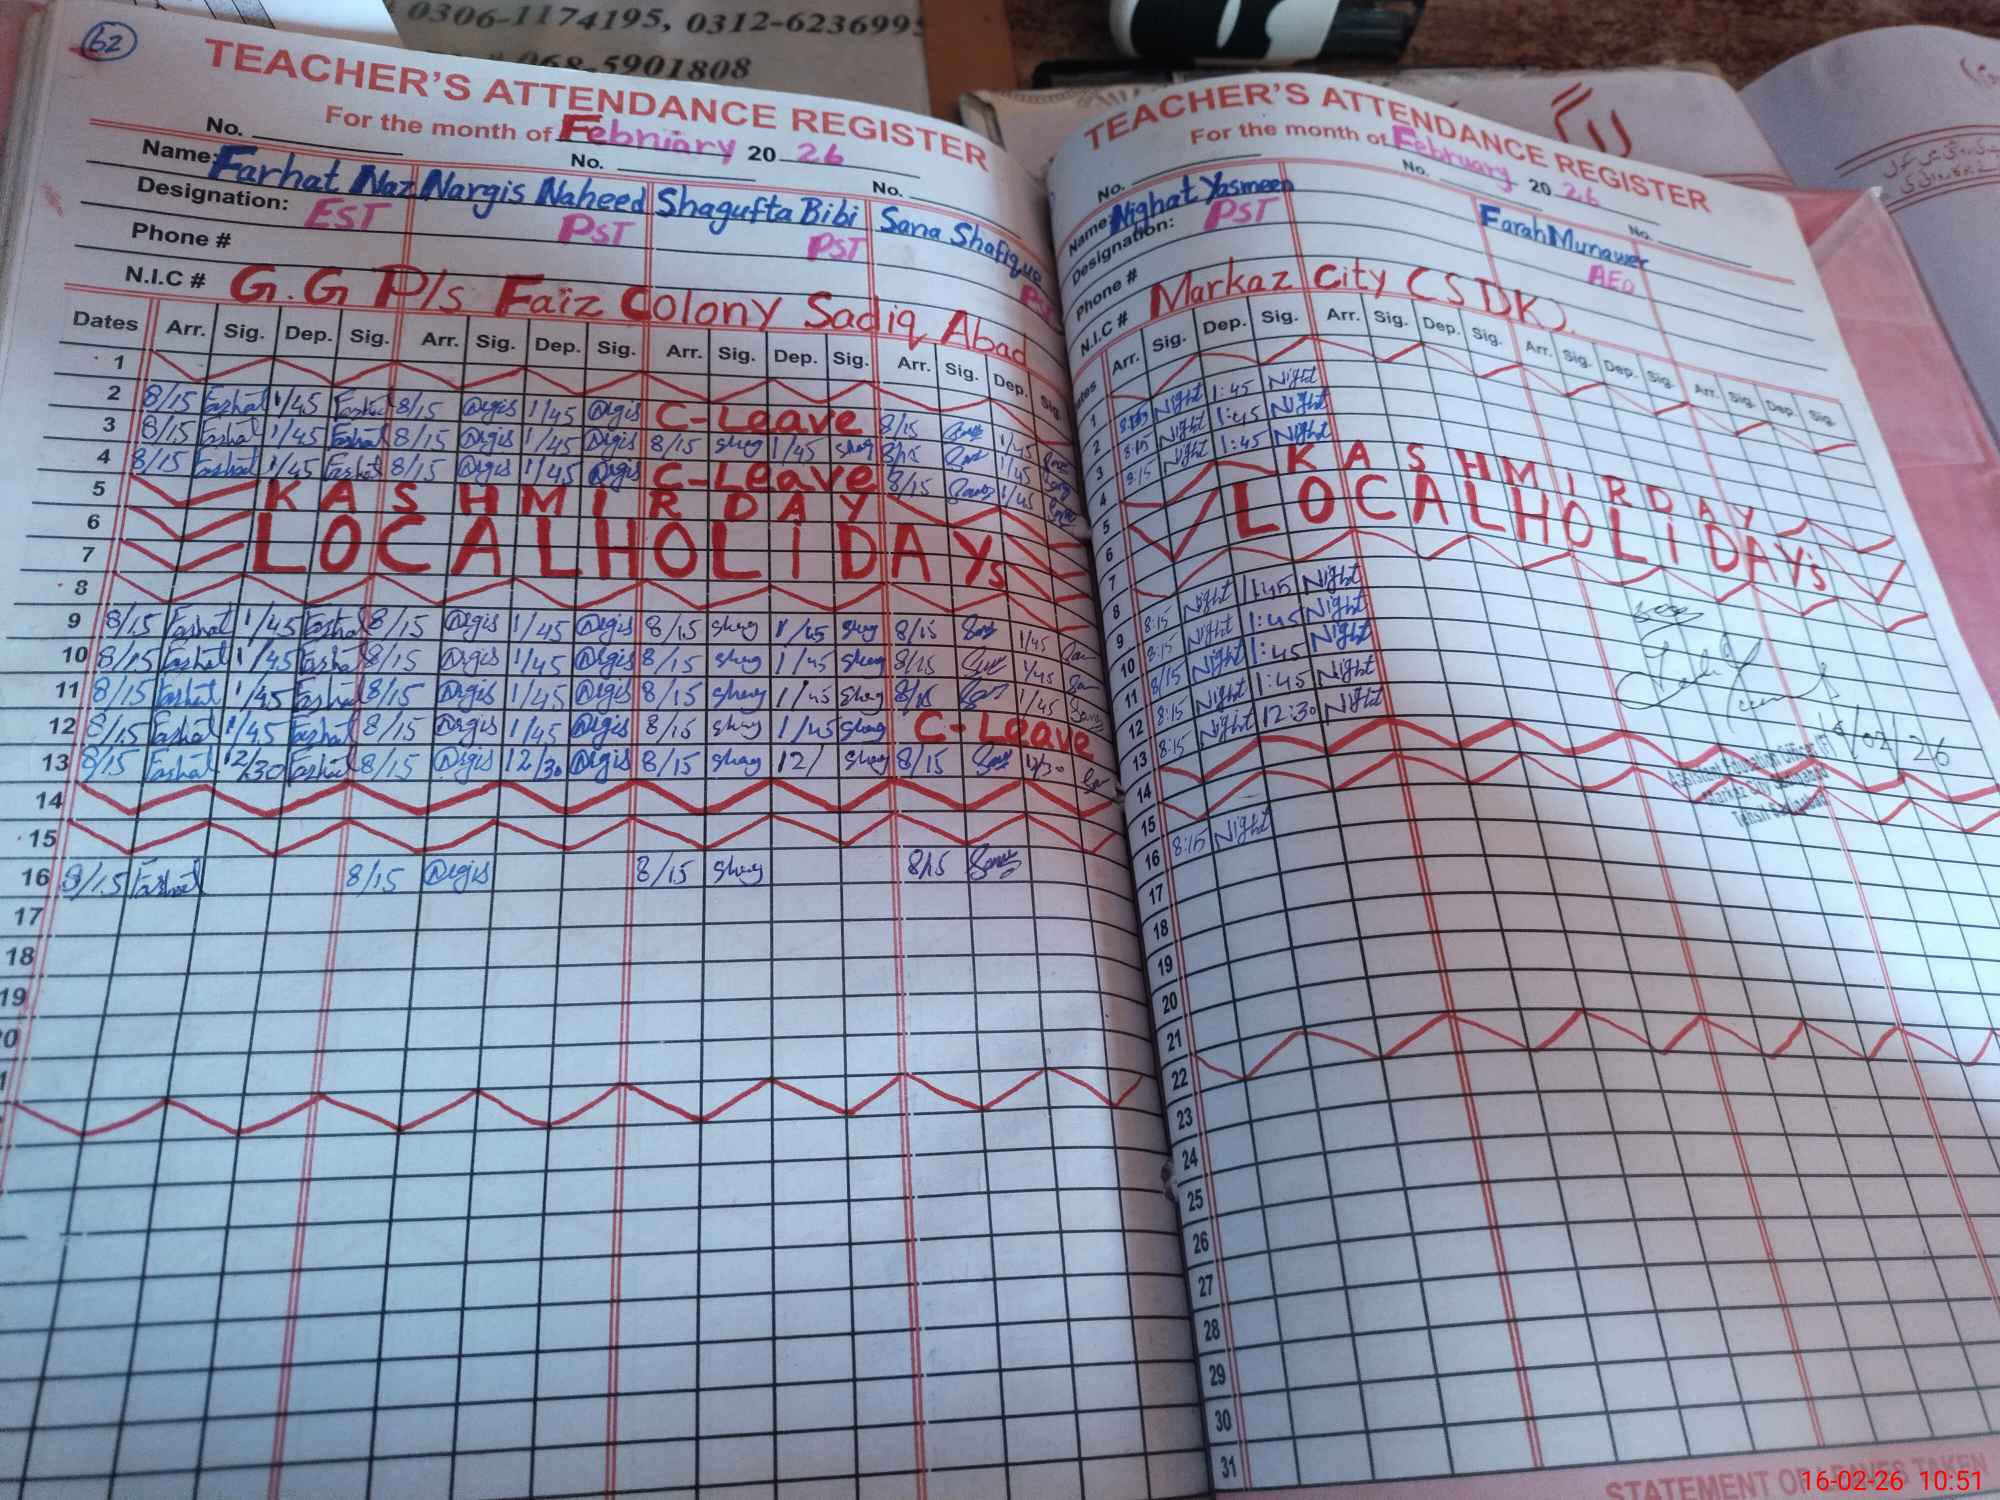 0306-1174195, 0312-6236995
068-5901808
62
TEACHER'S ATTENDANCE REGISTER
For the month of February 20 26
No. No. No.
Name: Farhat Naz Nargis Naheed Shagufta Bibi Sana Shafique
Designation: EST PST PST
Phone #
N.I.C # G.G P/s Faiz Colony Sadiq Abad
Dates Arr. Sig. Dep. Sig. Arr. Sig. Dep. Sig. Arr. Sig. Dep. Sig. Arr. Sig. Dep. Sig.
1
2 8/15 Farhat 1/45 Farhat 8/15 Nrgis 1/45 Nrgis C-Leave 8/15 1/45
3 8/15 Farhat 1/45 Farhat 8/15 Nrgis 1/45 Nrgis 8/15 Shag 1/45 Shag 8/15 1/45
4 8/15 Farhat 1/45 Farhat 8/15 Nrgis 1/45 Nrgis C-Leave 8/15 1/45
5 KASHMIR DAY
6 LOCAL HOLIDAYs
7
8
9 8/15 Farhat 1/45 Farhat 8/15 Nrgis 1/45 Nrgis 8/15 Shag 1/45 Shag 8/15 1/45
10 8/15 Farhat 1/45 Farhat 8/15 Nrgis 1/45 Nrgis 8/15 Shag 1/45 Shag 8/15 1/45
11 8/15 Farhat 1/45 Farhat 8/15 Nrgis 1/45 Nrgis 8/15 Shag 1/45 Shag 8/15 1/45
12 8/15 Farhat 1/45 Farhat 8/15 Nrgis 1/45 Nrgis 8/15 Shag 1/45 Shag C-Leave
13 8/15 Farhat 12/30 Farhat 8/15 Nrgis 12/30 Nrgis 8/15 Shag 12/ Shag 8/15
14
15
16 8/15 Farhat 8/15 Nrgis 8/15 Shag 8/15
17
18
19
TEACHER'S ATTENDANCE REGISTER
For the month of February 20 26
No. No. No.
Name: Nighat Yasmeen Farah Munawer
Designation: PST AEO
Phone #
N.I.C # Markaz City (SDK).
Arr. Sig. Dep. Sig. Arr. Sig. Dep. Sig. Arr. Sig. Dep. Sig. Arr. Sig. Dep. Sig.
1
2 8:15 Night 1:45 Night
3 8:15 Night 1:45 Night
4 8:15 Night 1:45 Night
5 KASHMIR DAY
6 LOCAL HOLIDAY's
7
8
9 8:15 Night 1:45 Night
10 8:15 Night 1:45 Night
11 8/15 Night 1:45 Night
12 8:15 Night 1:45 Night
13 8:15 Night 12:30 Night
/02/26
Assistant Education Officer (F)
Markaz City Sadiqabad
Tehsil Sadiqabad
14
15
16 8:15 Night
17
18
19
20
21
22
23
24
25
26
27
28
29
30
31
STATEMENT OF LEAVES TAKEN
16-02-26 10:51